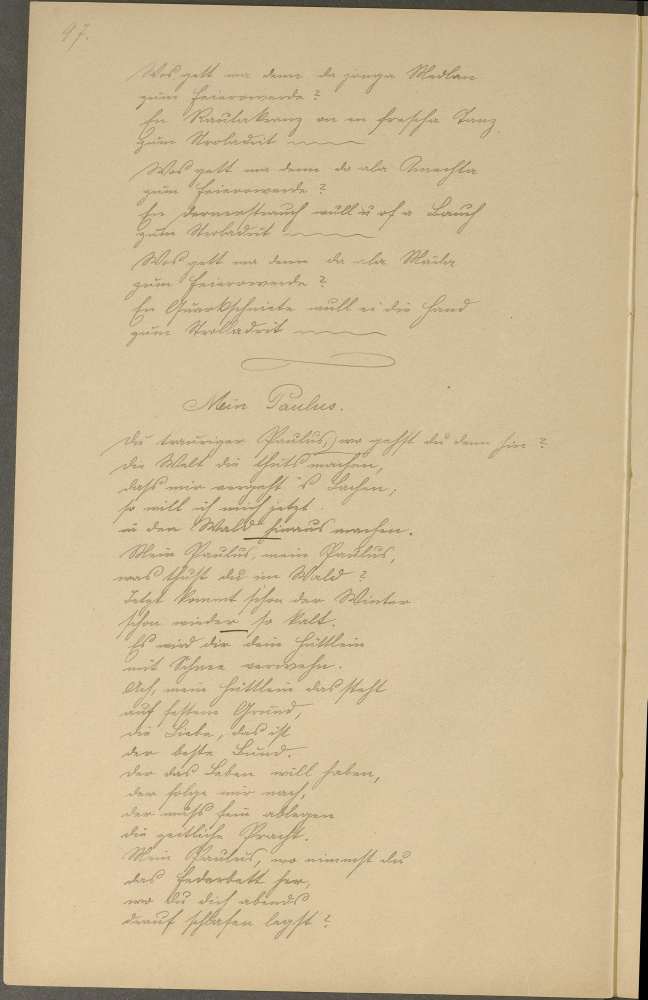 97.
Wos gett ma denn da jonga Medlan
zum Feierowende?
En Rautakranz on en frescha Tanz,
zum Strobadrit
Wos gett ma denn da ala Knechta
zum Feierowende?
En Dernerstrauch wull ü of a Bauch
zum Strobadrit
Wos gett ma denn da ala Maila
zum Feierowende?
En Quarkschniete wull ei die Hand
zum Strobadrit
Mein Paulus.
Du trauriger Paulus, wo gehst du denn hin?
Die Welt die thuts machen,
dass mir vergeht 's Lachen;
so will ich mich jetzt
in den Wald hinaus machen.
Mein Paulus, mein Paulus,
was thust du im Wald?
Jetzt kommt schon der Winter
schon wieder so kalt.
Es wird dir dein Hüttlein
mit Schnee verwehn.
Ach, mein Hüttlein das steht
auf festem Grund,
die Liebe, das ist
der beste Bund.
Der das Leben will haben,
der folge mir nach,
der muss fein ablegen
die zeitliche Pracht.
Mein Paulus, wo nimmst du
das Federbett her,
wo du dich abends
drauf schlafen legst?